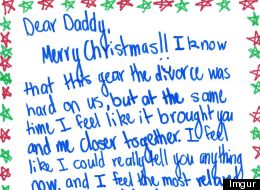 Dear Daddy,
Merry Christmas!! I know
that this year the divorce was
hard on us, but at the same
time I feel like it brought you
and me closer together. I feel
like I could really tell you anything
now, and I feel the most
Imgur